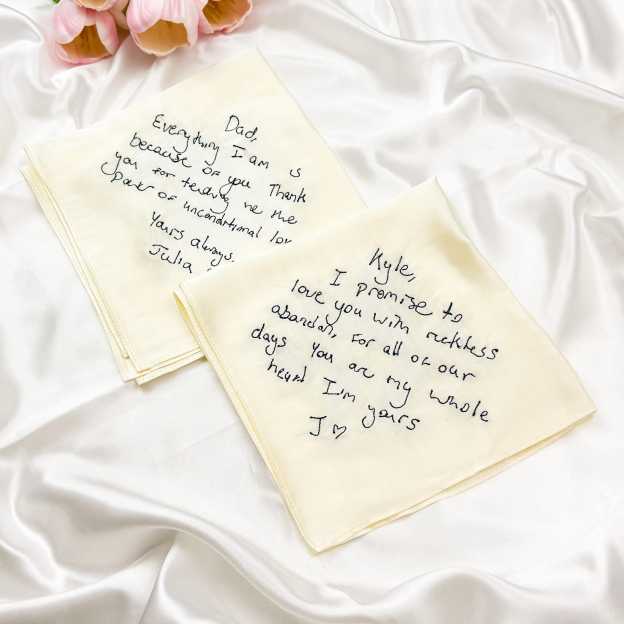 Dad,
Everything I am is
because of you Thank
you for teaching me the
power of unconditional lov
Yours always.
Julia
Kyle,
I promise to
love you with reckless
abandon, for all of our
days You are my whole
heart I'm yours
J ♡